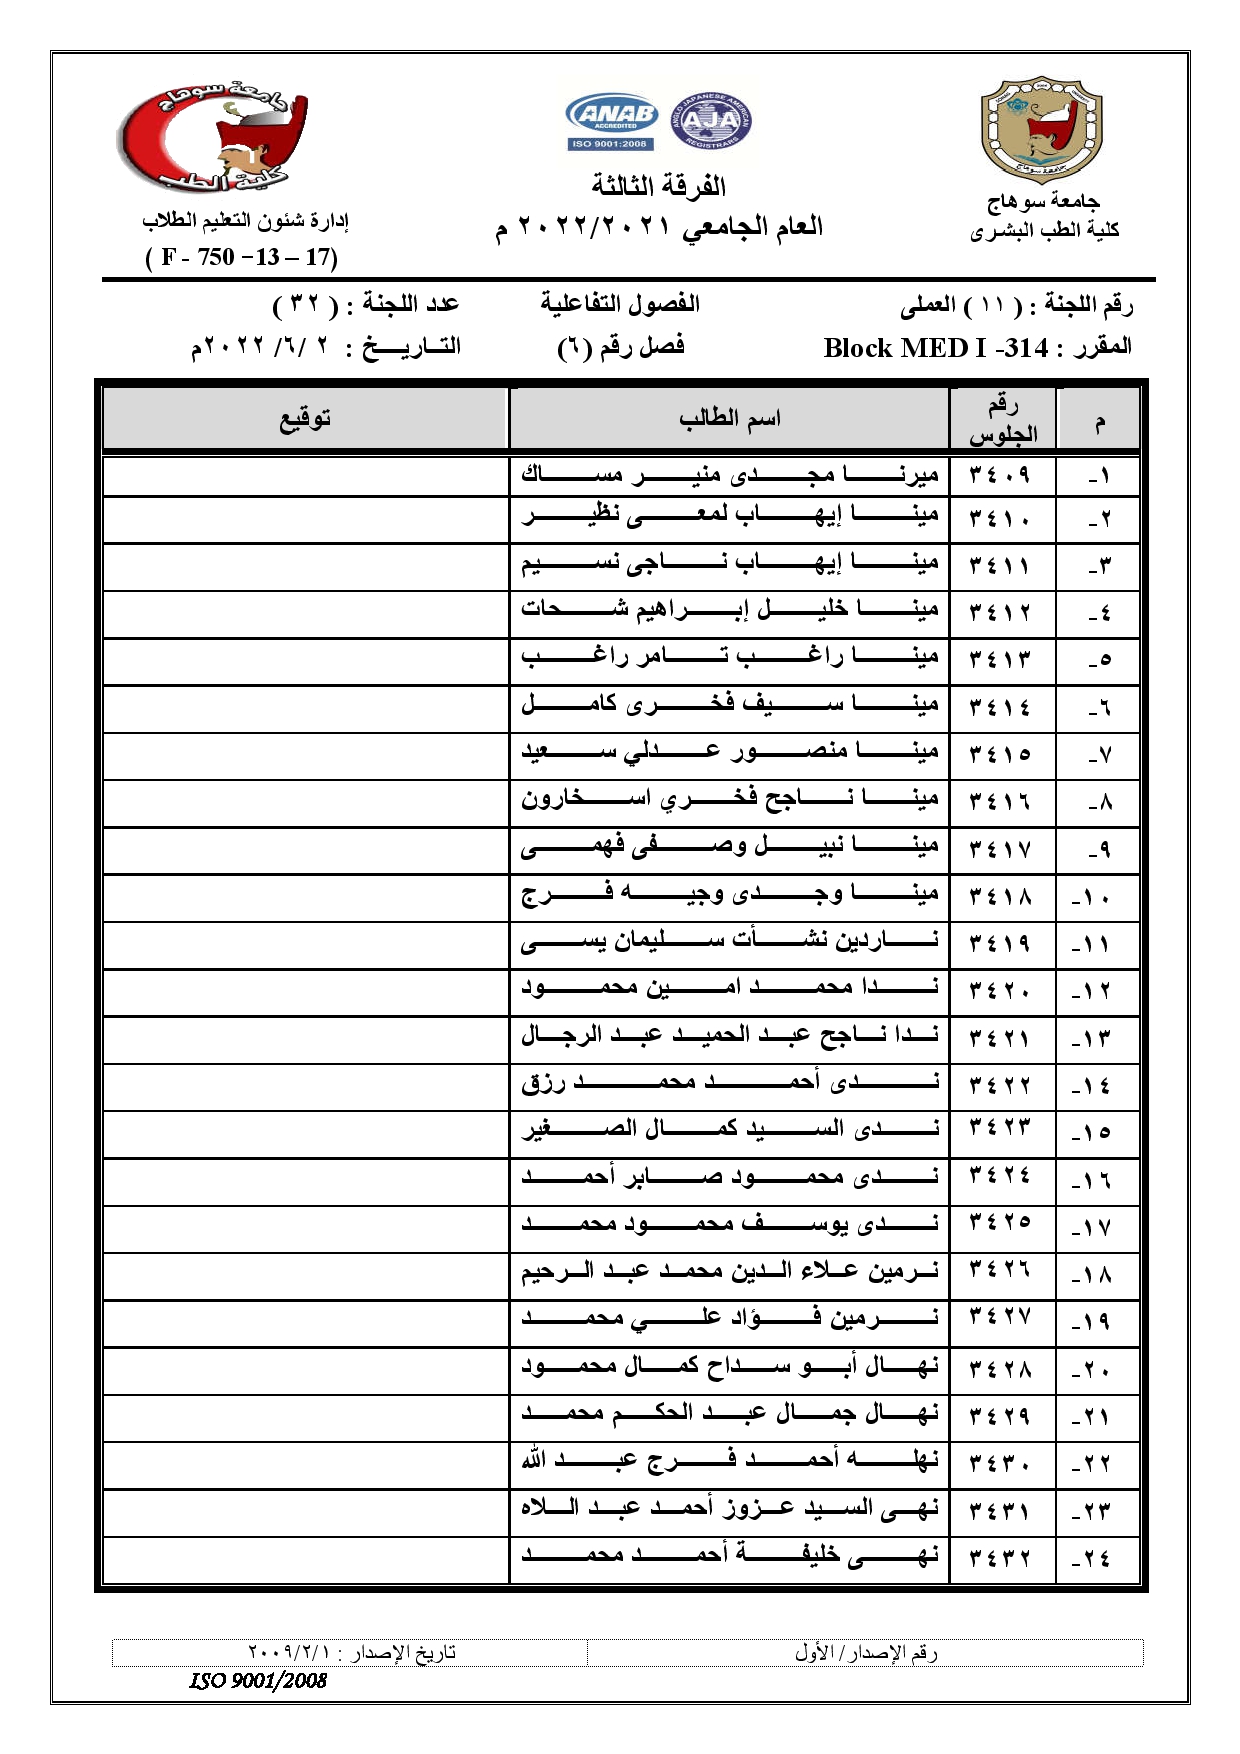 جامعة سوهاج
كلية الطب
ANAB
ACCREDITED
ISO 9001:2008
ANGLO JAPANESE AMERICAN
AJA
REGISTRARS
جامعة سوهاج
جامعة سوهاج
كلية الطب البشرى
الفرقة الثالثة
العام الجامعي ٢٠٢٢/٢٠٢١ م
إدارة شئون التعليم الطلاب
( F - 750 -13 – 17)
رقم اللجنة : ( ١١ ) العملى الفصول التفاعلية عدد اللجنة : ( ٣٢ )
المقرر : Block MED I -314 فصل رقم (٦) التاريخ : ٢ /٦/ ٢٠٢٢م
م رقم الجلوس اسم الطالب توقيع
١- ٣٤٠٩ ميرنا مجدى منير مساك
٢- ٣٤١٠ مينا إيهاب لمعى نظير
٣- ٣٤١١ مينا إيهاب ناجى نسيم
٤- ٣٤١٢ مينا خليل إبراهيم شحات
٥- ٣٤١٣ مينا راغب تامر راغب
٦- ٣٤١٤ مينا سيف فخرى كامل
٧- ٣٤١٥ مينا منصور عدلي سعيد
٨- ٣٤١٦ مينا ناجح فخري اسخارون
٩- ٣٤١٧ مينا نبيل وصفى فهمى
١٠- ٣٤١٨ مينا وجدى وجيه فرج
١١- ٣٤١٩ ناردين نشأت سليمان يسى
١٢- ٣٤٢٠ ندا محمد امين محمود
١٣- ٣٤٢١ ندا ناجح عبد الحميد عبد الرجال
١٤- ٣٤٢٢ ندى أحمد محمد رزق
١٥- ٣٤٢٣ ندى السيد كمال الصغير
١٦- ٣٤٢٤ ندى محمود صابر أحمد
١٧- ٣٤٢٥ ندى يوسف محمود محمد
١٨- ٣٤٢٦ نرمين علاء الدين محمد عبد الرحيم
١٩- ٣٤٢٧ نرمين فؤاد علي محمد
٢٠- ٣٤٢٨ نهال أبو سداح كمال محمود
٢١- ٣٤٢٩ نهال جمال عبد الحكم محمد
٢٢- ٣٤٣٠ نهله أحمد فرج عبد الله
٢٣- ٣٤٣١ نهى السيد عزوز أحمد عبد اللاه
٢٤- ٣٤٣٢ نهى خليفة أحمد محمد
رقم الإصدار/ الأول تاريخ الإصدار : ٢٠٠٩/٢/١
ISO 9001/2008